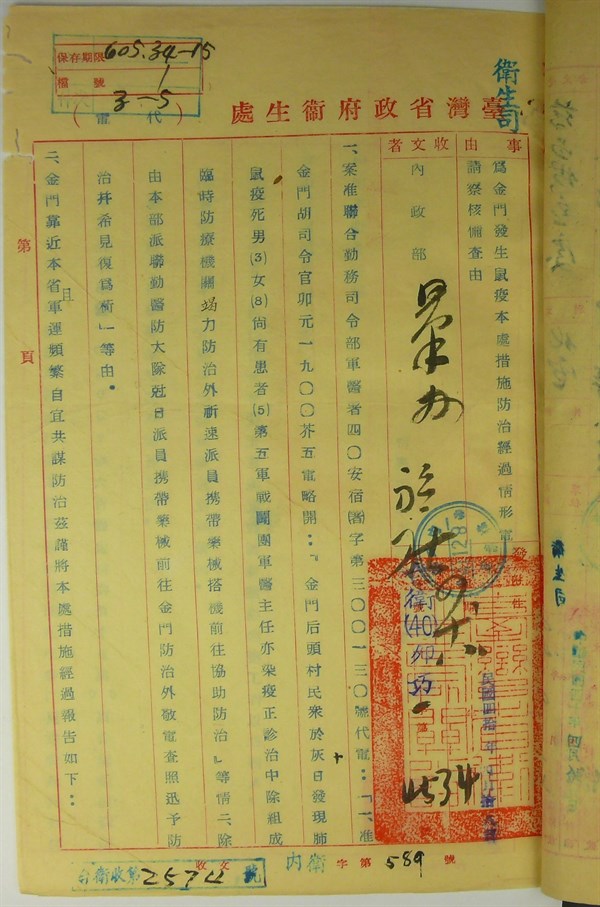 保存期限 605.34-15
檔號 1
3-5
(代電)
衛生司
臺灣省政府衞生處
事由
為金門發生鼠疫本處措施防治經過情形電
請察核備查由
收文者
內政部
衛(40)卯巧
一、案准聯合勤務司令部軍醫者四〇安宿(者)字第三〇〇一三〇號代電：「一、准
金門胡司令官卯元一九〇〇芥五電略開：『金門后頭村民衆於灰日發現肺
鼠疫死男(3)女(8)尚有患者(5)第五軍戰鬪團軍醫主任亦染疫正診治中除組成
臨時防療機關竭力防治外祈速派員携帶藥械搭機前往協助防治』等情二、除
由本部派聯勤醫防大隊尅日派員携帶藥械前往金門防治外敬電查照迅予防
治幷希見復為荷」等由。
二、金門靠近本省且軍運頻繁自宜共謀防治茲謹將本處措施經過報告如下：
第 頁
內衛字第589號
台衛收第2574號
收文